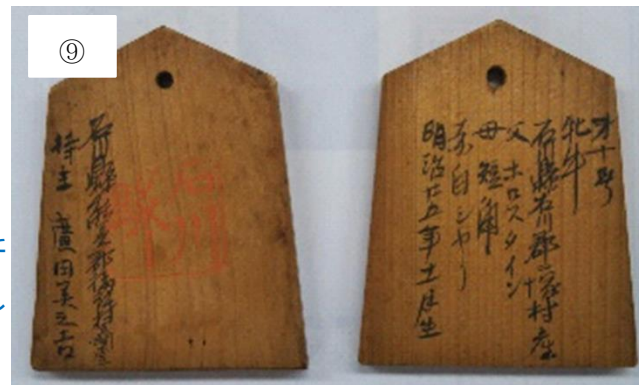 ⑨
石川
縣
石川縣能美郡
持主 廣田美之吉
才十号
牝牛
石川縣石川郡 村産
父 ホロスタイン
母 短角
赤白
明治廿五年十一月生